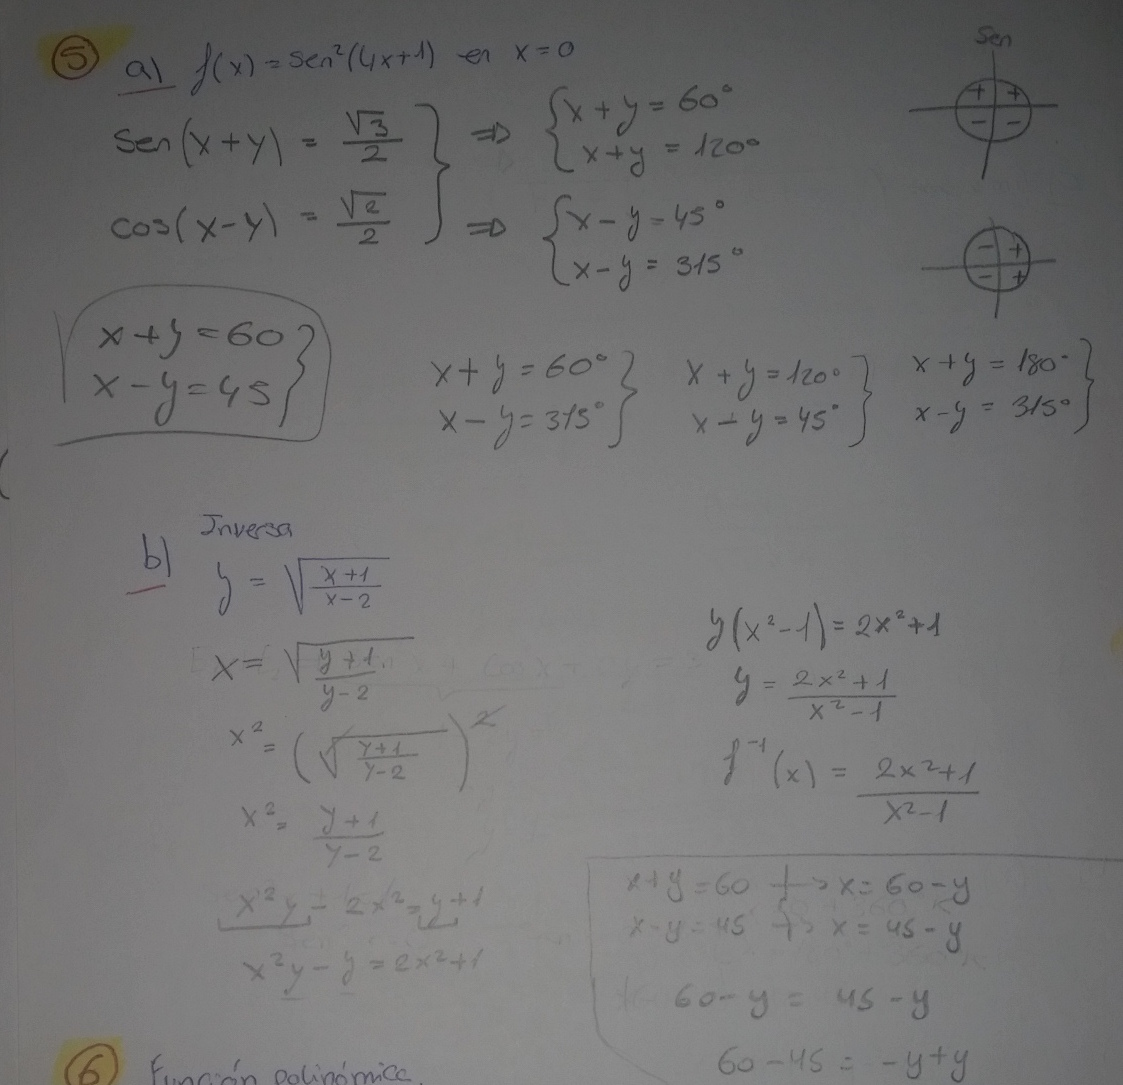 5 a) f(x) = sen²(4x+1) en x=0
Sen
+ +
− −
sen(x+y) = √3/2 } ⇒ { x+y = 60°
x+y = 120°
cos(x−y) = √2/2 ⇒ { x−y = 45°
x−y = 315°
− +
− +
x+y = 60 }
x−y = 45
x+y = 60° }
x−y = 315°
x+y = 120° }
x−y = 45°
x+y = 180° }
x−y = 315°
b) Inversa
y = √(x+1/x−2)
x = √(y+1/y−2)
x² = (√(y+1/y−2))²
x² = y+1/y−2
x²y − 2x² = y+1
x²y − y = 2x²+1
y(x²−1) = 2x²+1
y = 2x²+1/x²−1
f⁻¹(x) = 2x²+1/x²−1
x+y = 60 → x = 60−y
x−y = 45 → x = 45−y
60−y = 45−y
60−45 = −y+y
6 Función polinómica.